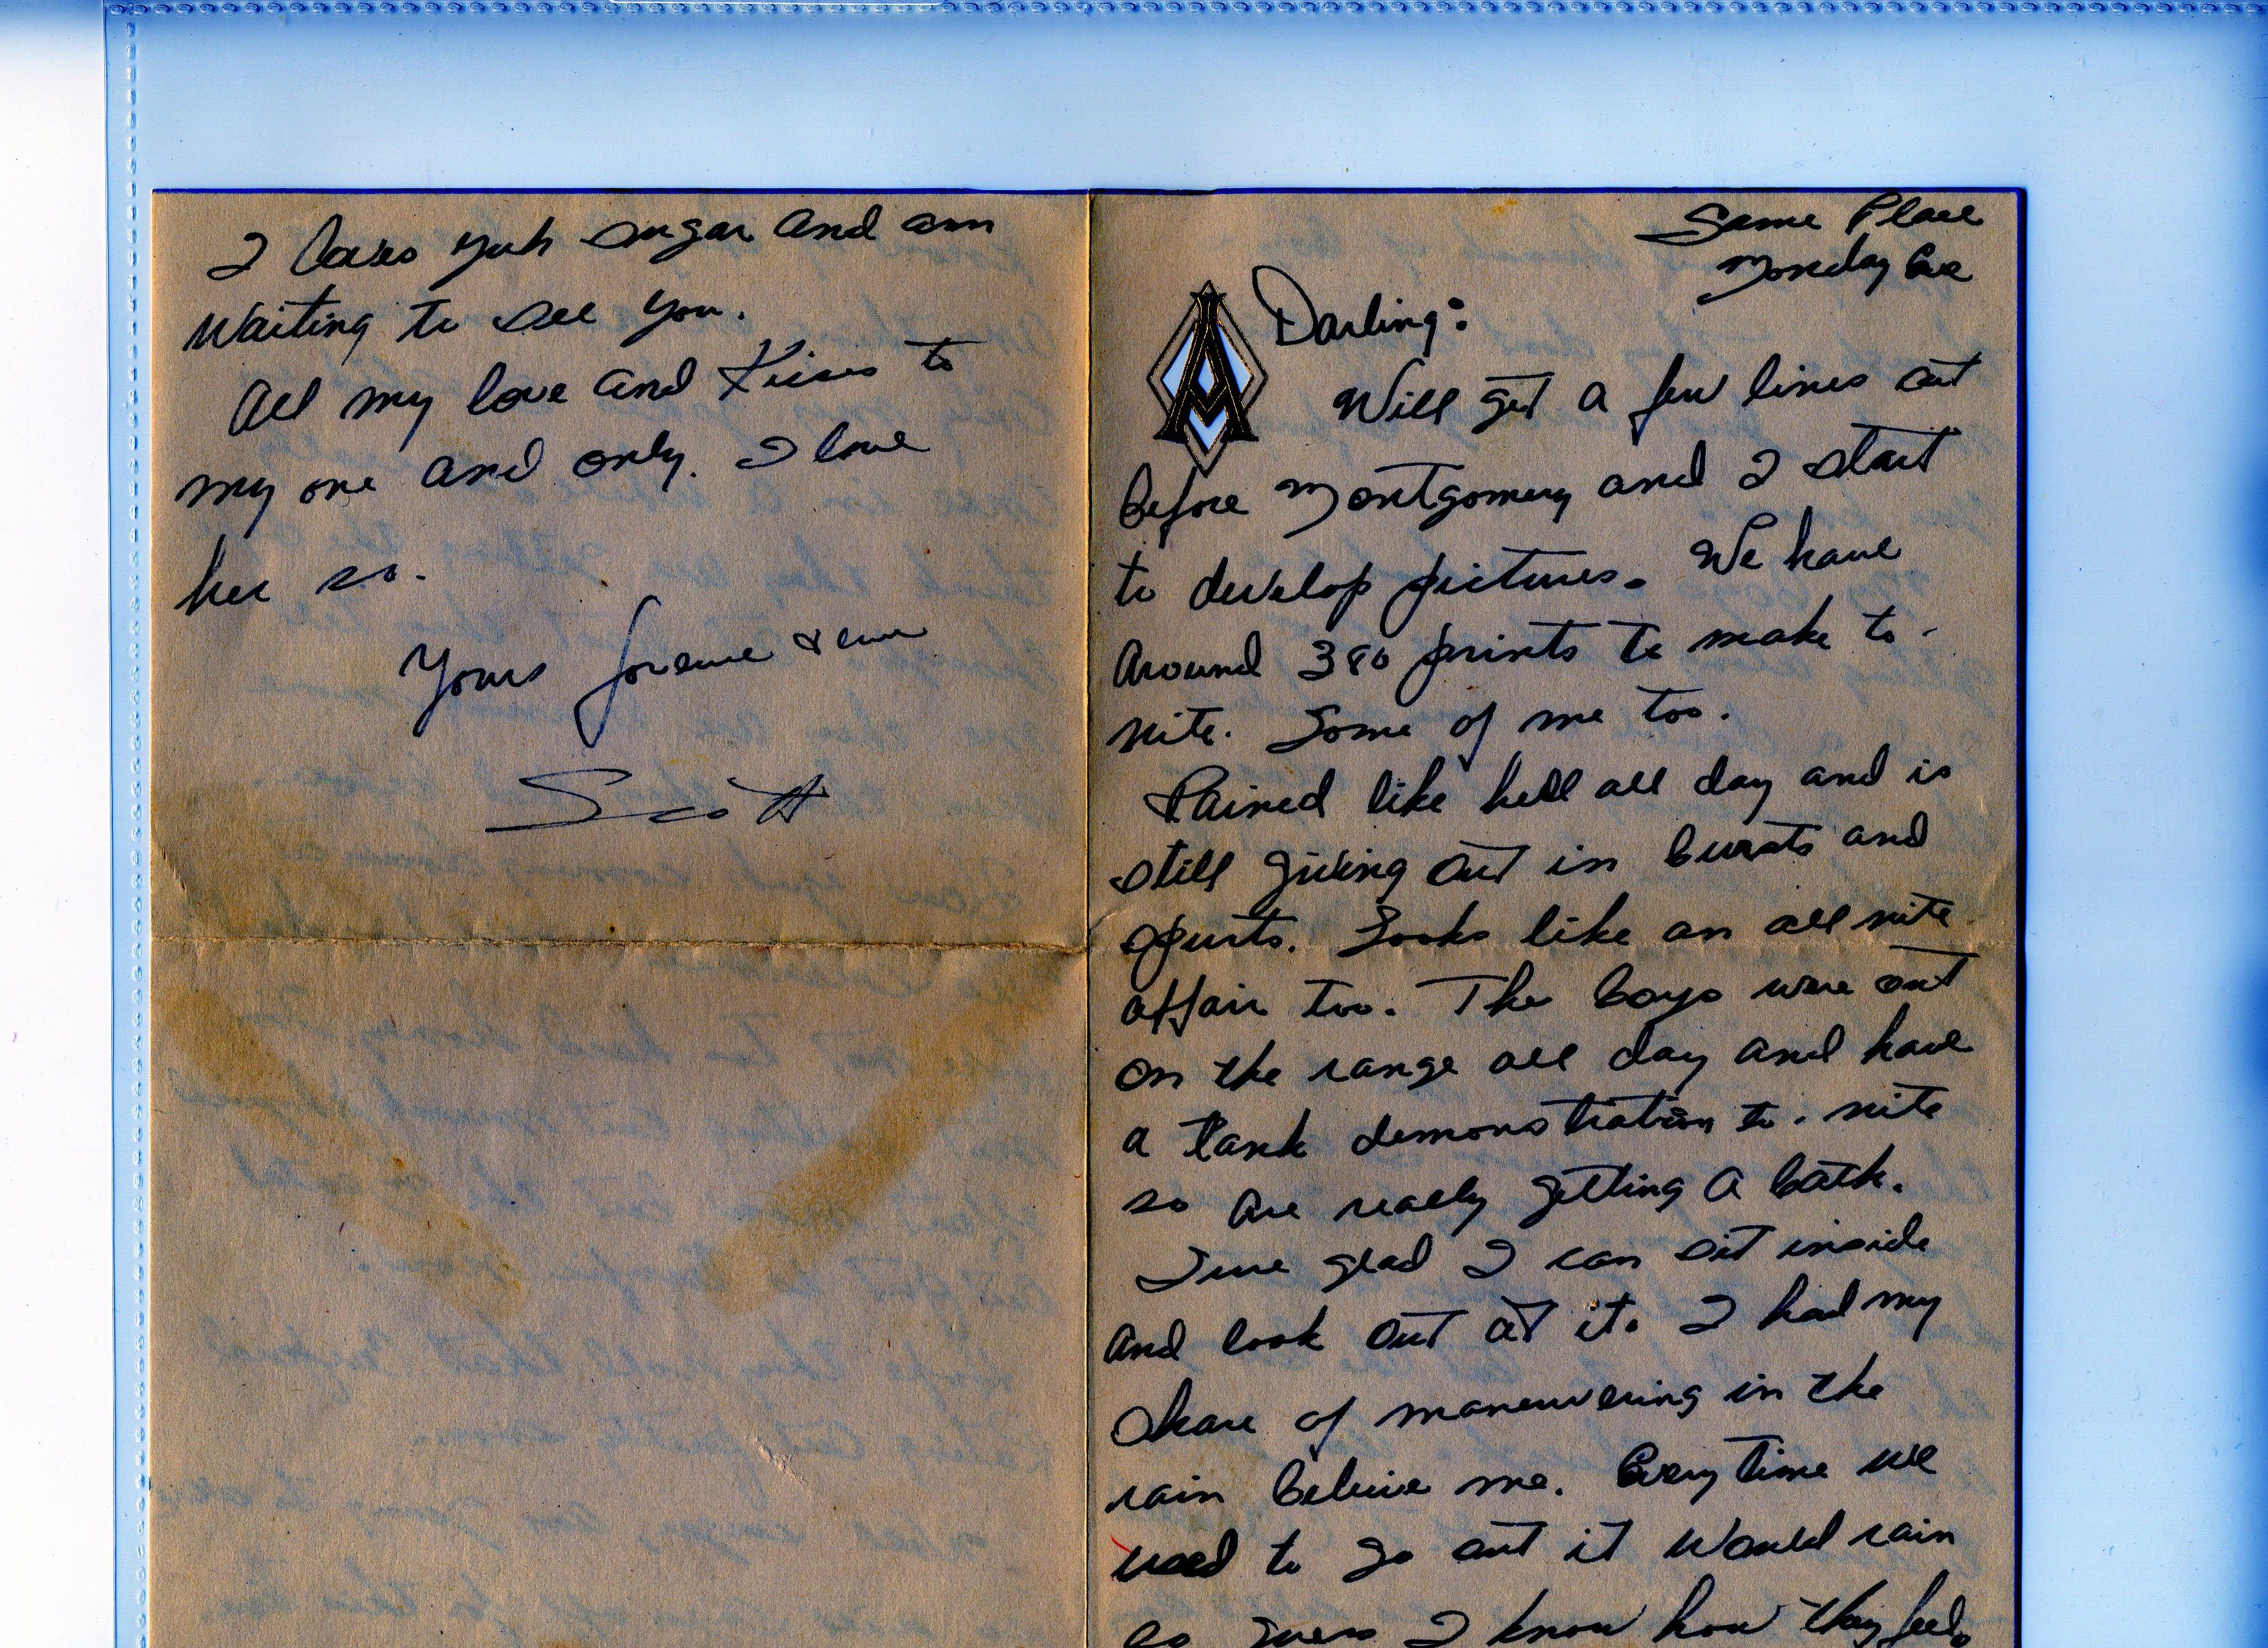 I loves yuh sugar and am
waiting to see you.
All my love and kisses to
my one and only. I love
her so.
Yours forever & ever
Scott
Same Place
Monday Eve
A
Darling:
Will get a few lines out
before Montgomery and I start
to develop pictures. We have
around 380 prints to make to-
nite. Some of me too.
Rained like hell all day and is
still giving out in bursts and
spurts. Looks like an all nite
affair too. The boys were out
on the range all day and have
a tank demonstration to-nite
so are really getting a bath.
I'me glad I can sit inside
and look out at it. I had my
share of maneuvering in the
rain believe me. Every time we
used to go out it would rain
so guess I know how they feel.